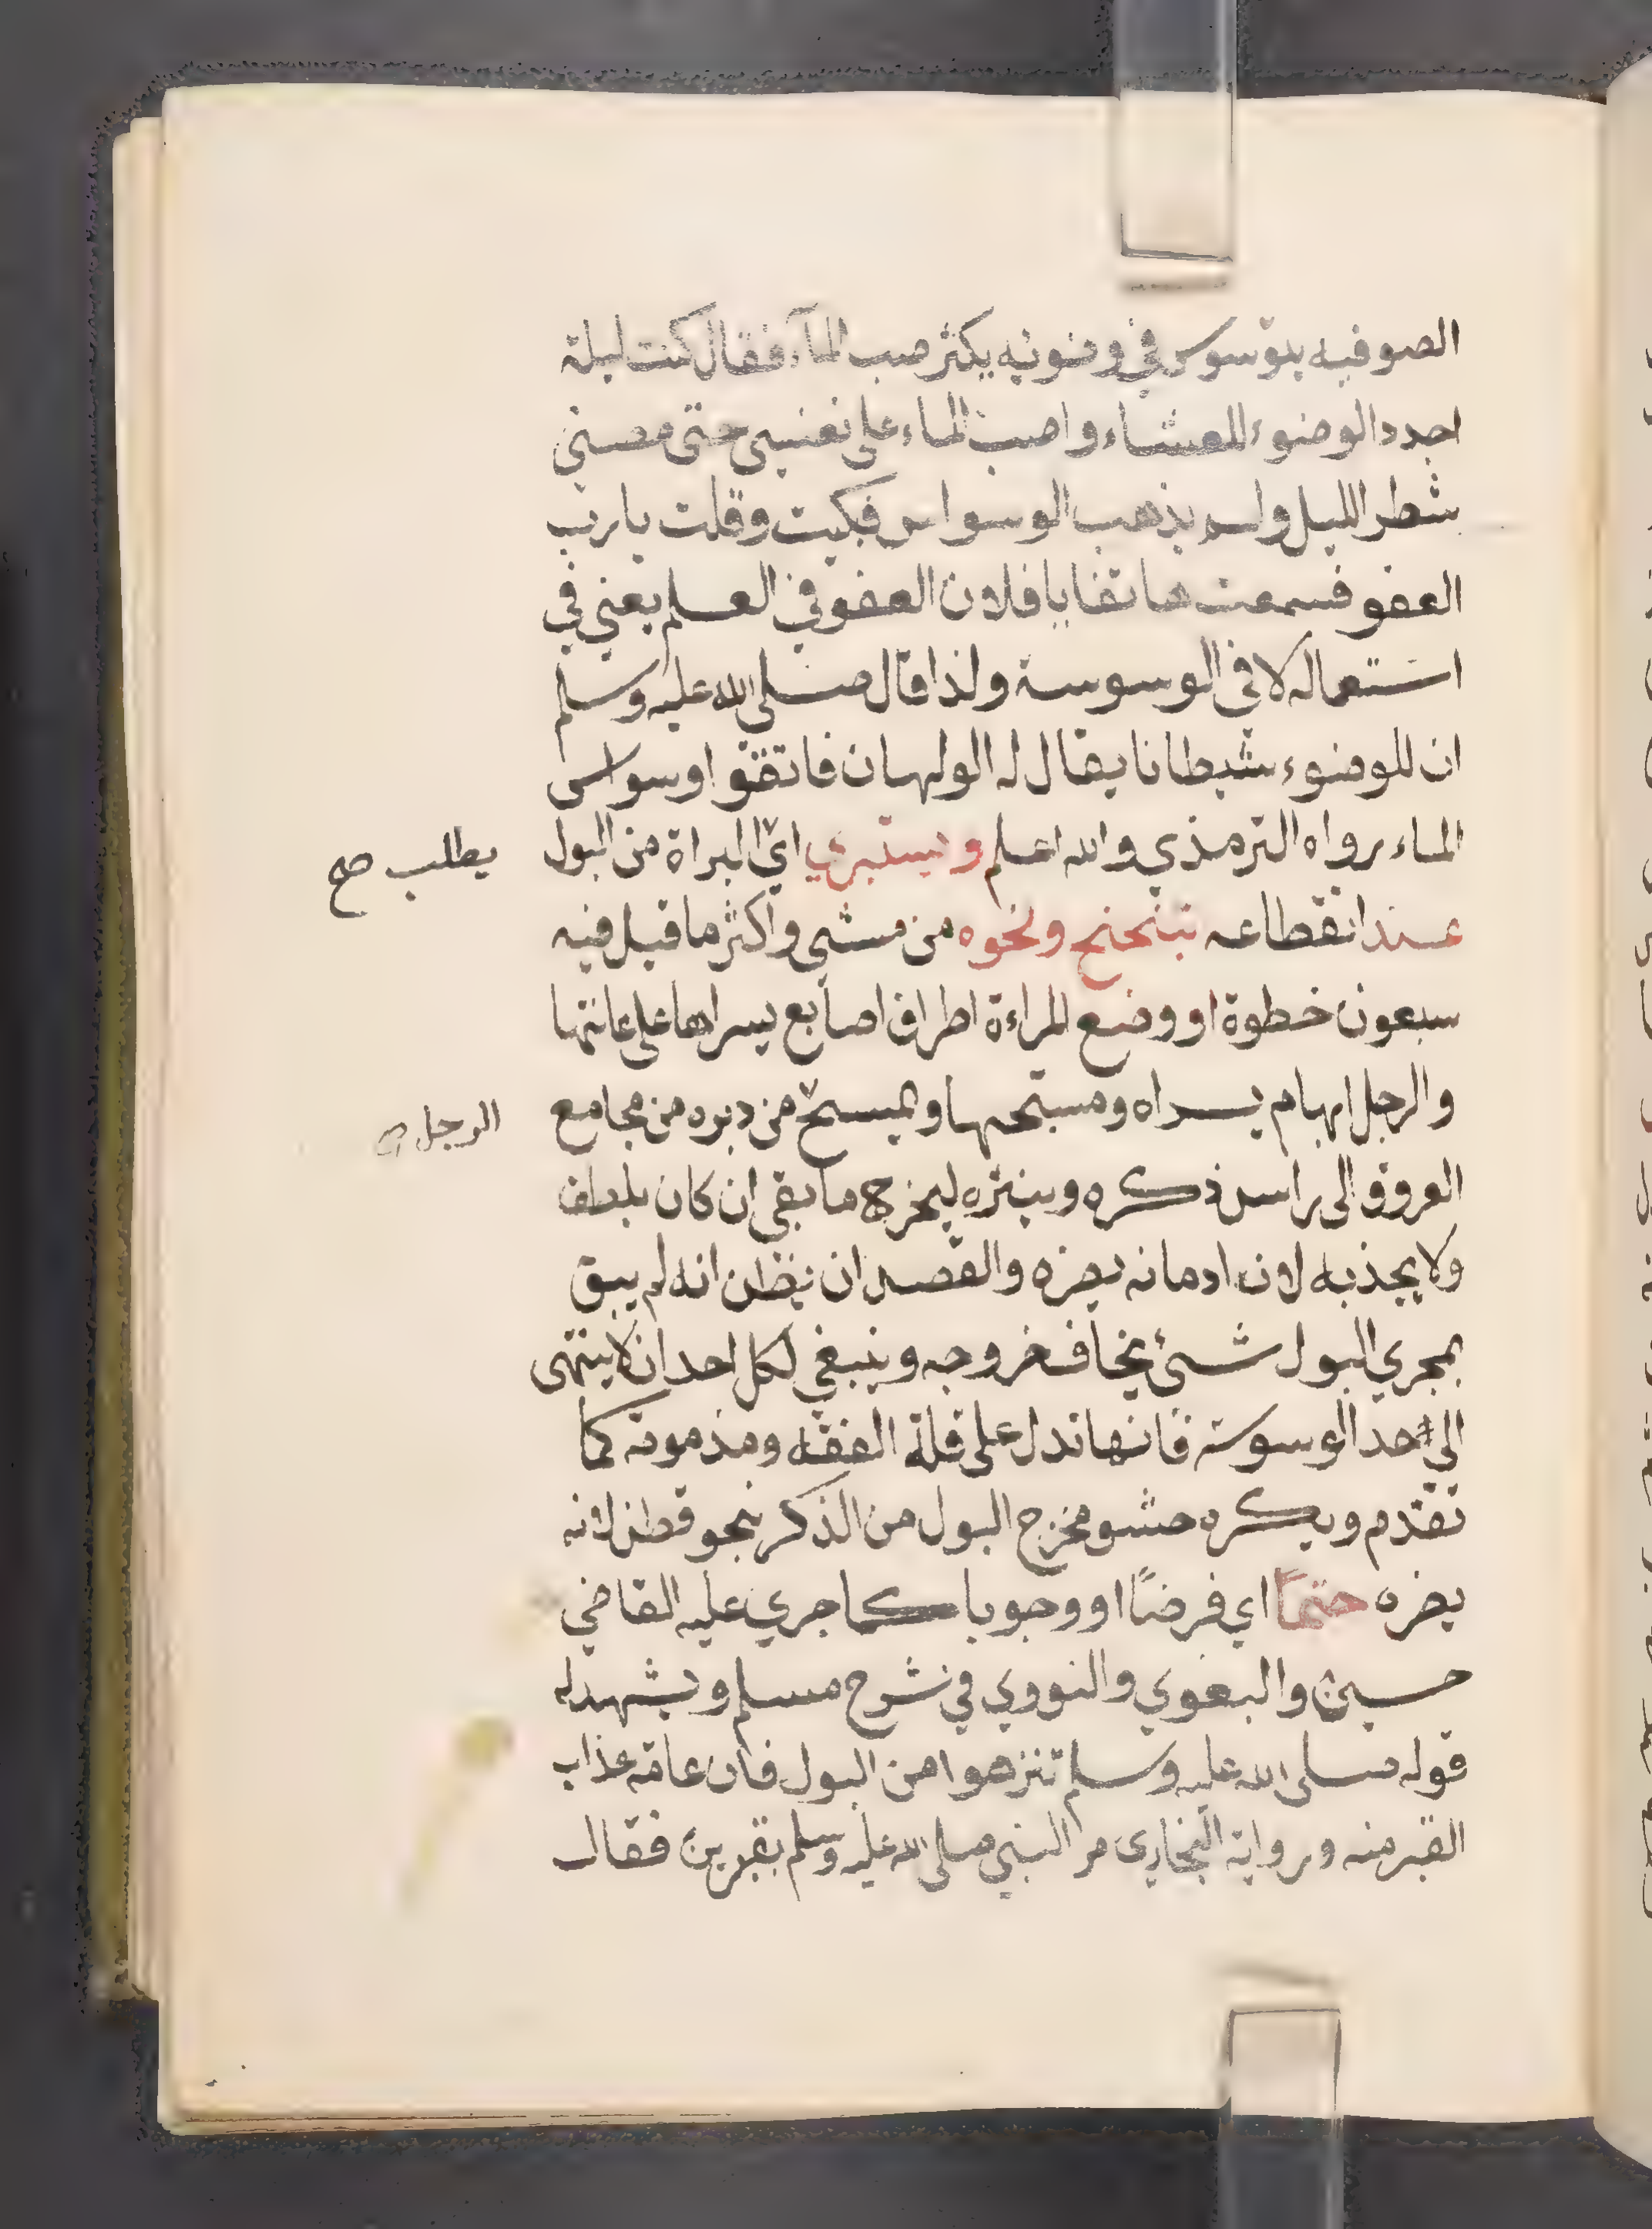 الصوفيه يتوسوس في وضوئه يكثر صب المآء فقال كنت ليلة
اجدد الوضوء للعشاء واصب الماء على نفسي حتى مضى
شطر الليل ولم يذهب الوسواس فبكيت وقلت يا رب
العفو فسمعت هاتفا يا فلان العفو في العلم يعني في
استعماله لا في الوسوسة ولذا قال صلى الله عليه وسلم
ان للوضوء شيطانا يقال له الولهان فاتقوا وسواس
الماء رواه الترمذي والله اعلم ويستبري اي البراة من البول
يطلب صح
عند انقطاعه بتنحنح ونحوه من مشي واكثر ما قيل فيه
سبعون خطوة او وضع المراءة اطراف اصابع يسراها على عانتها
والرجل ابهام يسراه ومسبحتها ويمسح من دبره من مجامع
الرجل
العروق الى راس ذكره وينتره ليخرج ما بقي ان كان بلطف
ولا يجذبه لان ادمانه يضره والقصد ان يظن انه لم يبق
بمجري البول شئ يخاف خروجه وينبغي لكل احد ان لا ينتهى
الي حد الوسوسة فانها تدل على قلة الفقه ومذمومة كما
تقدم ويكره حشو مخرج البول من الذكر بنحو قطن لانه
يضره حتمًا اي فرضًا او وجوبا كما جري عليه القاضي
حسين والبغوي والنووي في شرح مسلم ويشهد له
قوله صلى الله عليه وسلم تنزهوا من البول فان عامة عذاب
القبر منه ورواية البخاري مر النبي صلى الله عليه وسلم بقبرين فقال